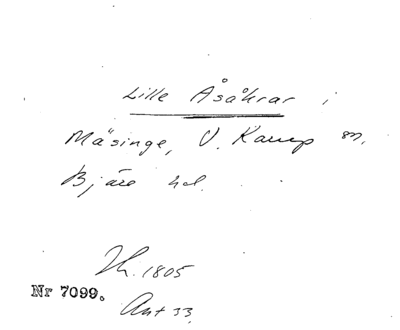 Lille Åsåkrar i
Mäsinge, V. Karup sn,
Bjäre hd.
Sk. 1805
Nr 7099.
Akt 33